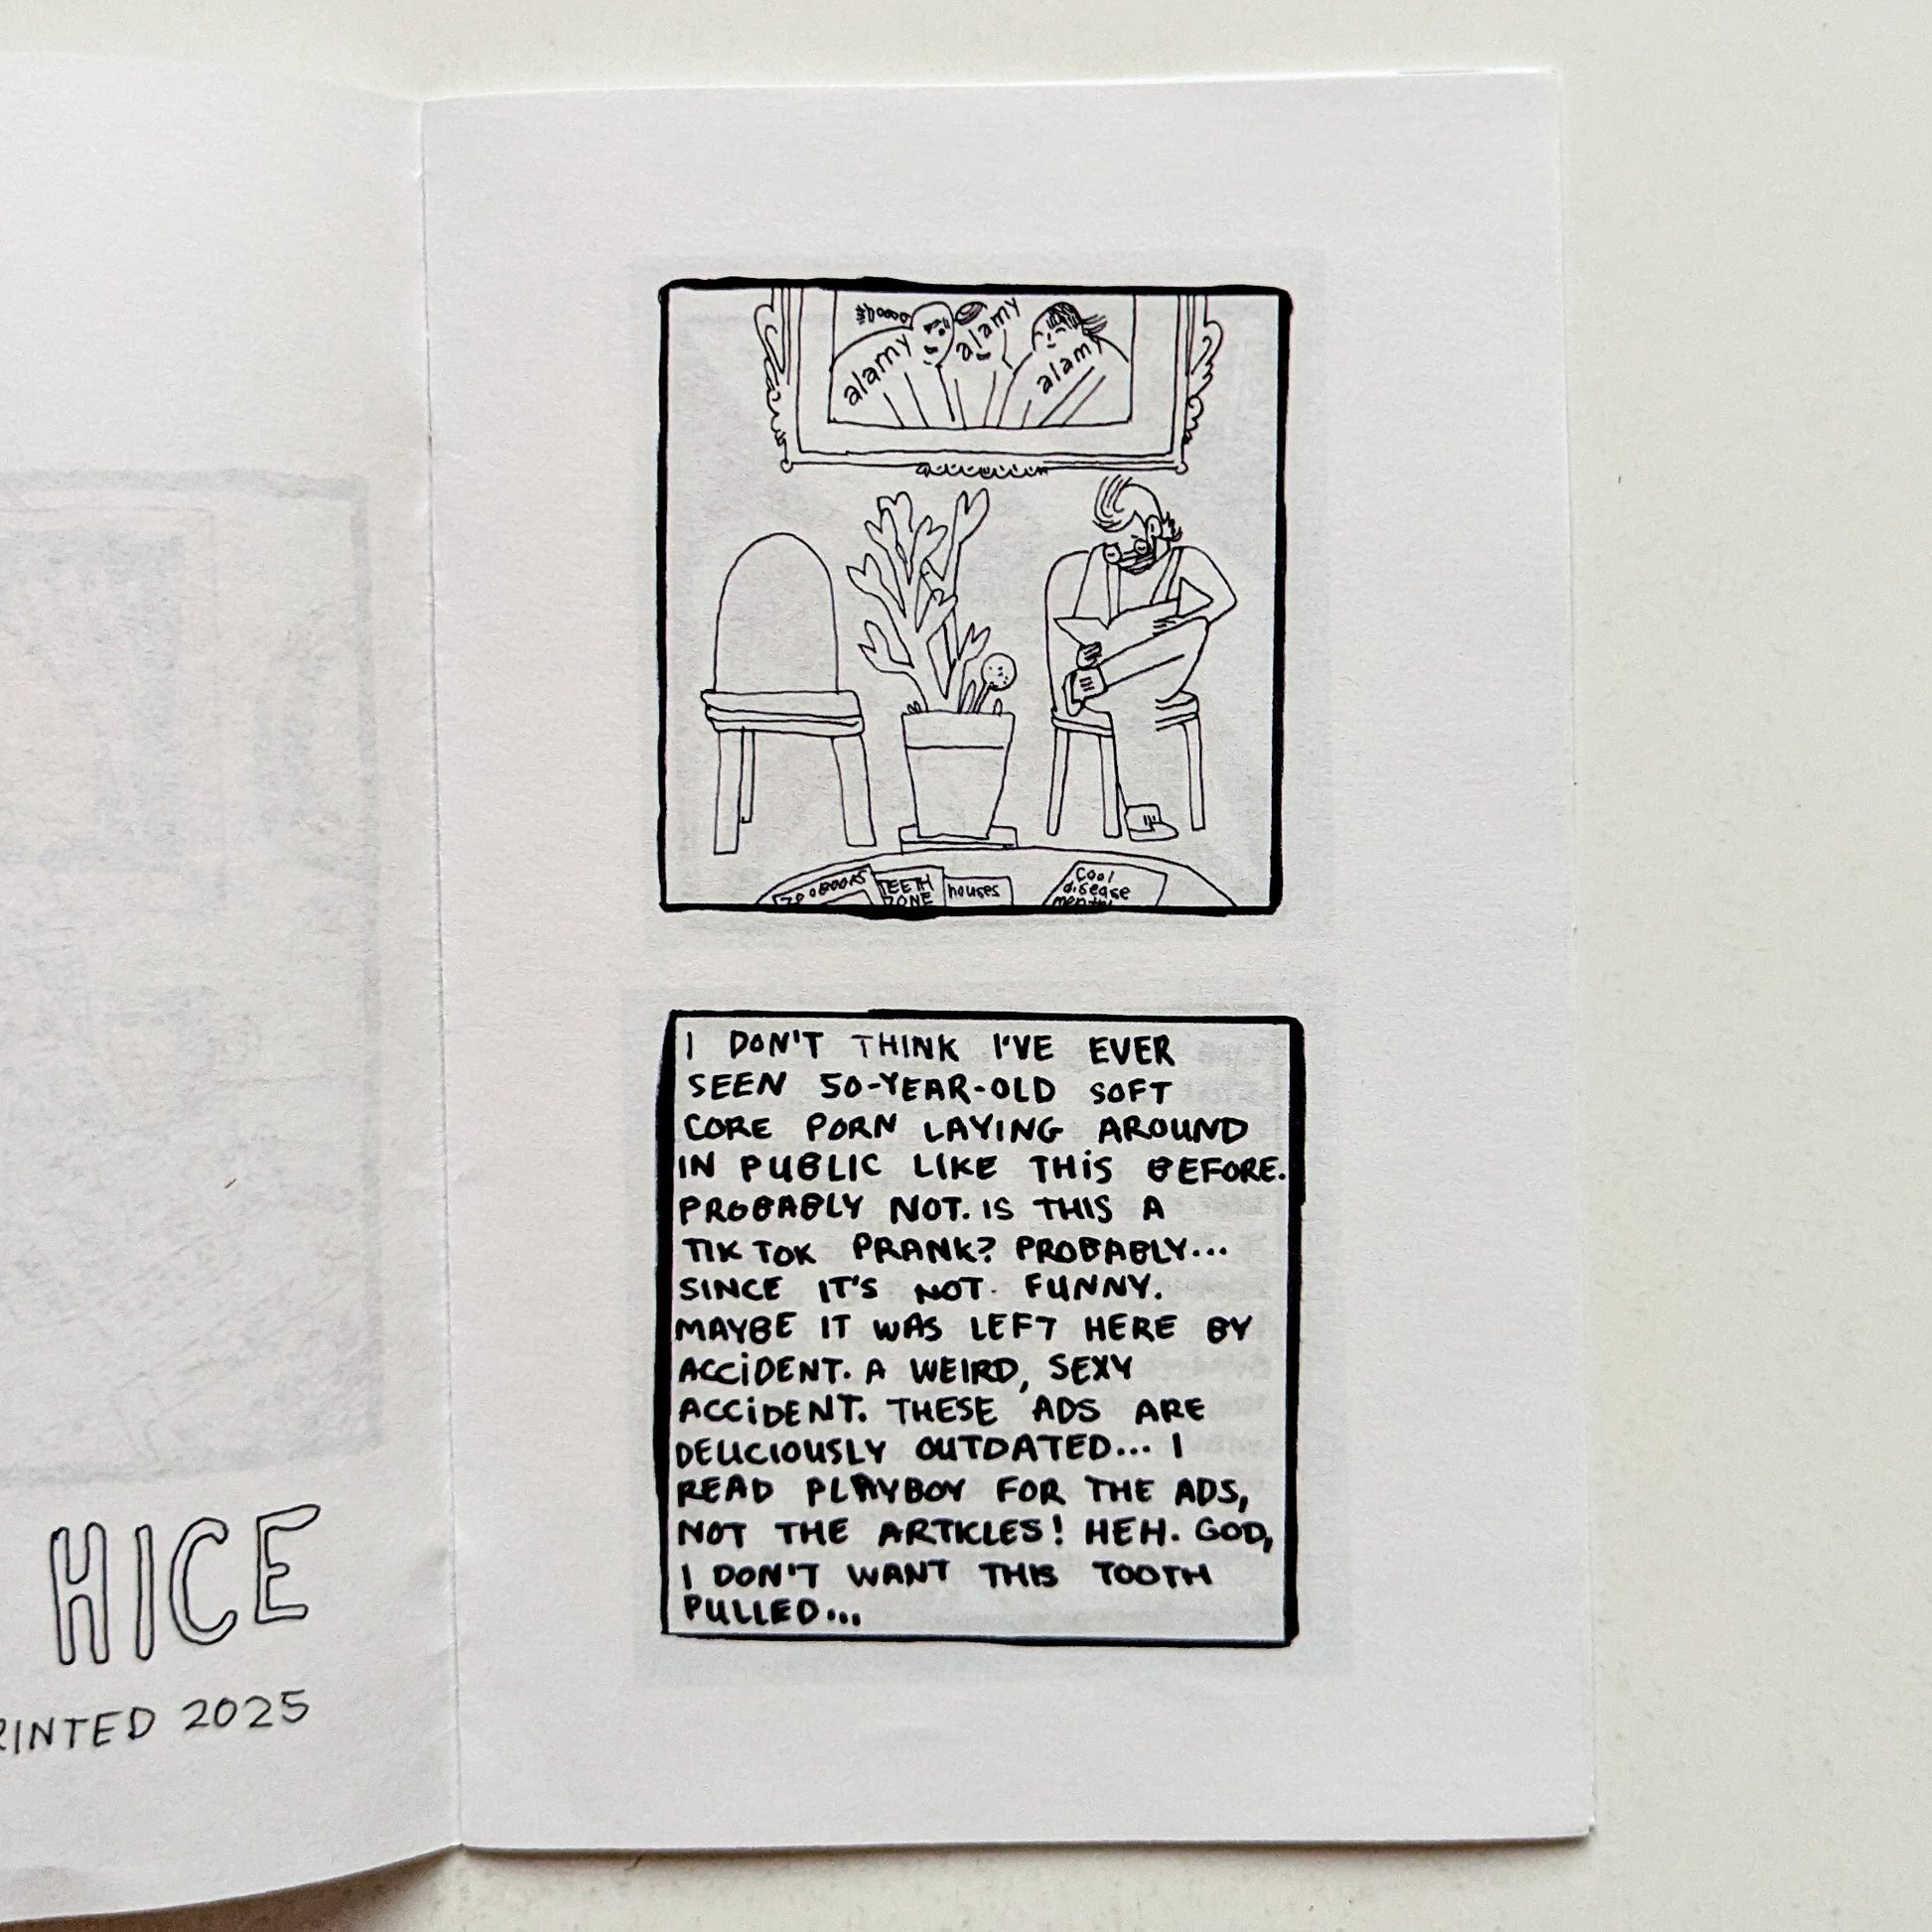 HICE
RINTED 2025
alamy
alamy
alamy
ZOOBOOKS
TEETH
ZONE
houses
Cool
disease
monthly
I DON'T THINK I'VE EVER
SEEN 50-YEAR-OLD SOFT
CORE PORN LAYING AROUND
IN PUBLIC LIKE THIS BEFORE.
PROBABLY NOT. IS THIS A
TIK TOK PRANK? PROBABLY...
SINCE IT'S NOT FUNNY.
MAYBE IT WAS LEFT HERE BY
ACCIDENT. A WEIRD, SEXY
ACCIDENT. THESE ADS ARE
DELICIOUSLY OUTDATED... I
READ PLAYBOY FOR THE ADS,
NOT THE ARTICLES! HEH. GOD,
I DON'T WANT THIS TOOTH
PULLED...